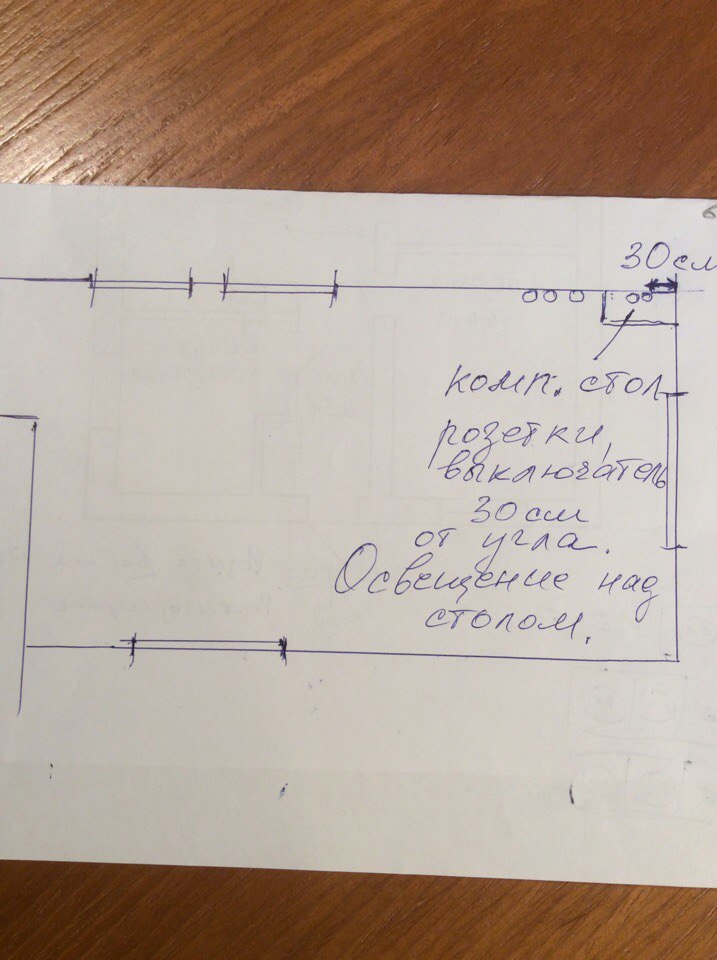 30см
комп. стол
розетки,
выключатель
30 см
от угла.
Освещение над
столом.